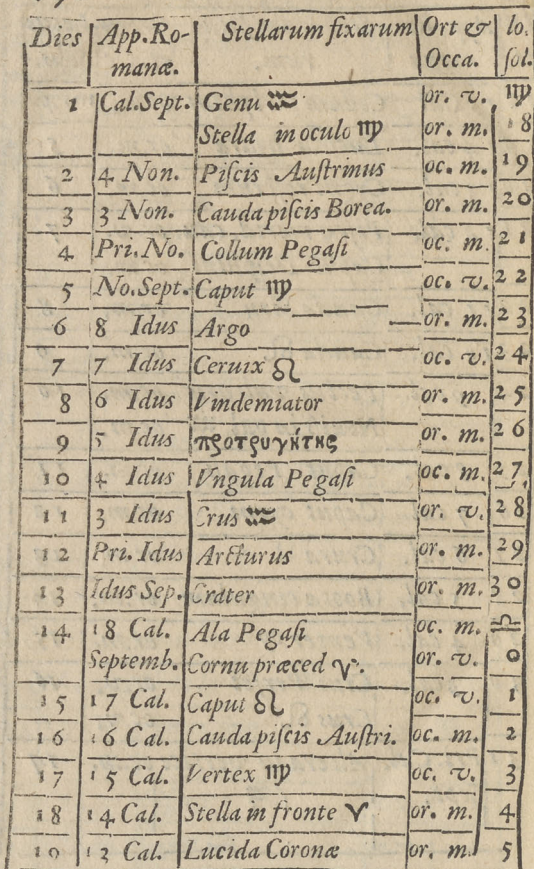 Dies App. Romanæ. Stellarum fixarum Ort & Occa. lo. ſol.
1 Cal.Sept. Genu ♒ or. v. ♍
Stella in oculo ♍ or. m. 18
2 4 Non. Piſcis Auſtrinus oc. m. 19
3 3 Non. Cauda piſcis Borea. or. m. 20
4 Pri. No. Collum Pegaſi oc. m. 21
5 No.Sept. Caput ♍ oc. v. 22
6 8 Idus Argo or. m. 23
7 7 Idus Ceruix ♌ oc. v. 24
8 6 Idus Vindemiator or. m. 25
9 5 Idus προτρυγήτης or. m. 26
10 4 Idus Vngula Pegaſi oc. m. 27
11 3 Idus Crus ♒ or. v. 28
12 Pri. Idus Arcturus or. m. 29
13 Idus Sep. Crater or. m. 30
14 18 Cal. Ala Pegaſi oc. m. ♎
Septemb. Cornu præced ♈. or. v. 0
15 17 Cal. Caput ♌ oc. v. 1
16 16 Cal. Cauda piſcis Auſtri. oc. m. 2
17 15 Cal. Vertex ♍ oc. v. 3
18 14 Cal. Stella in fronte ♈ or. m. 4
19 13 Cal. Lucida Coronæ or. m. 5